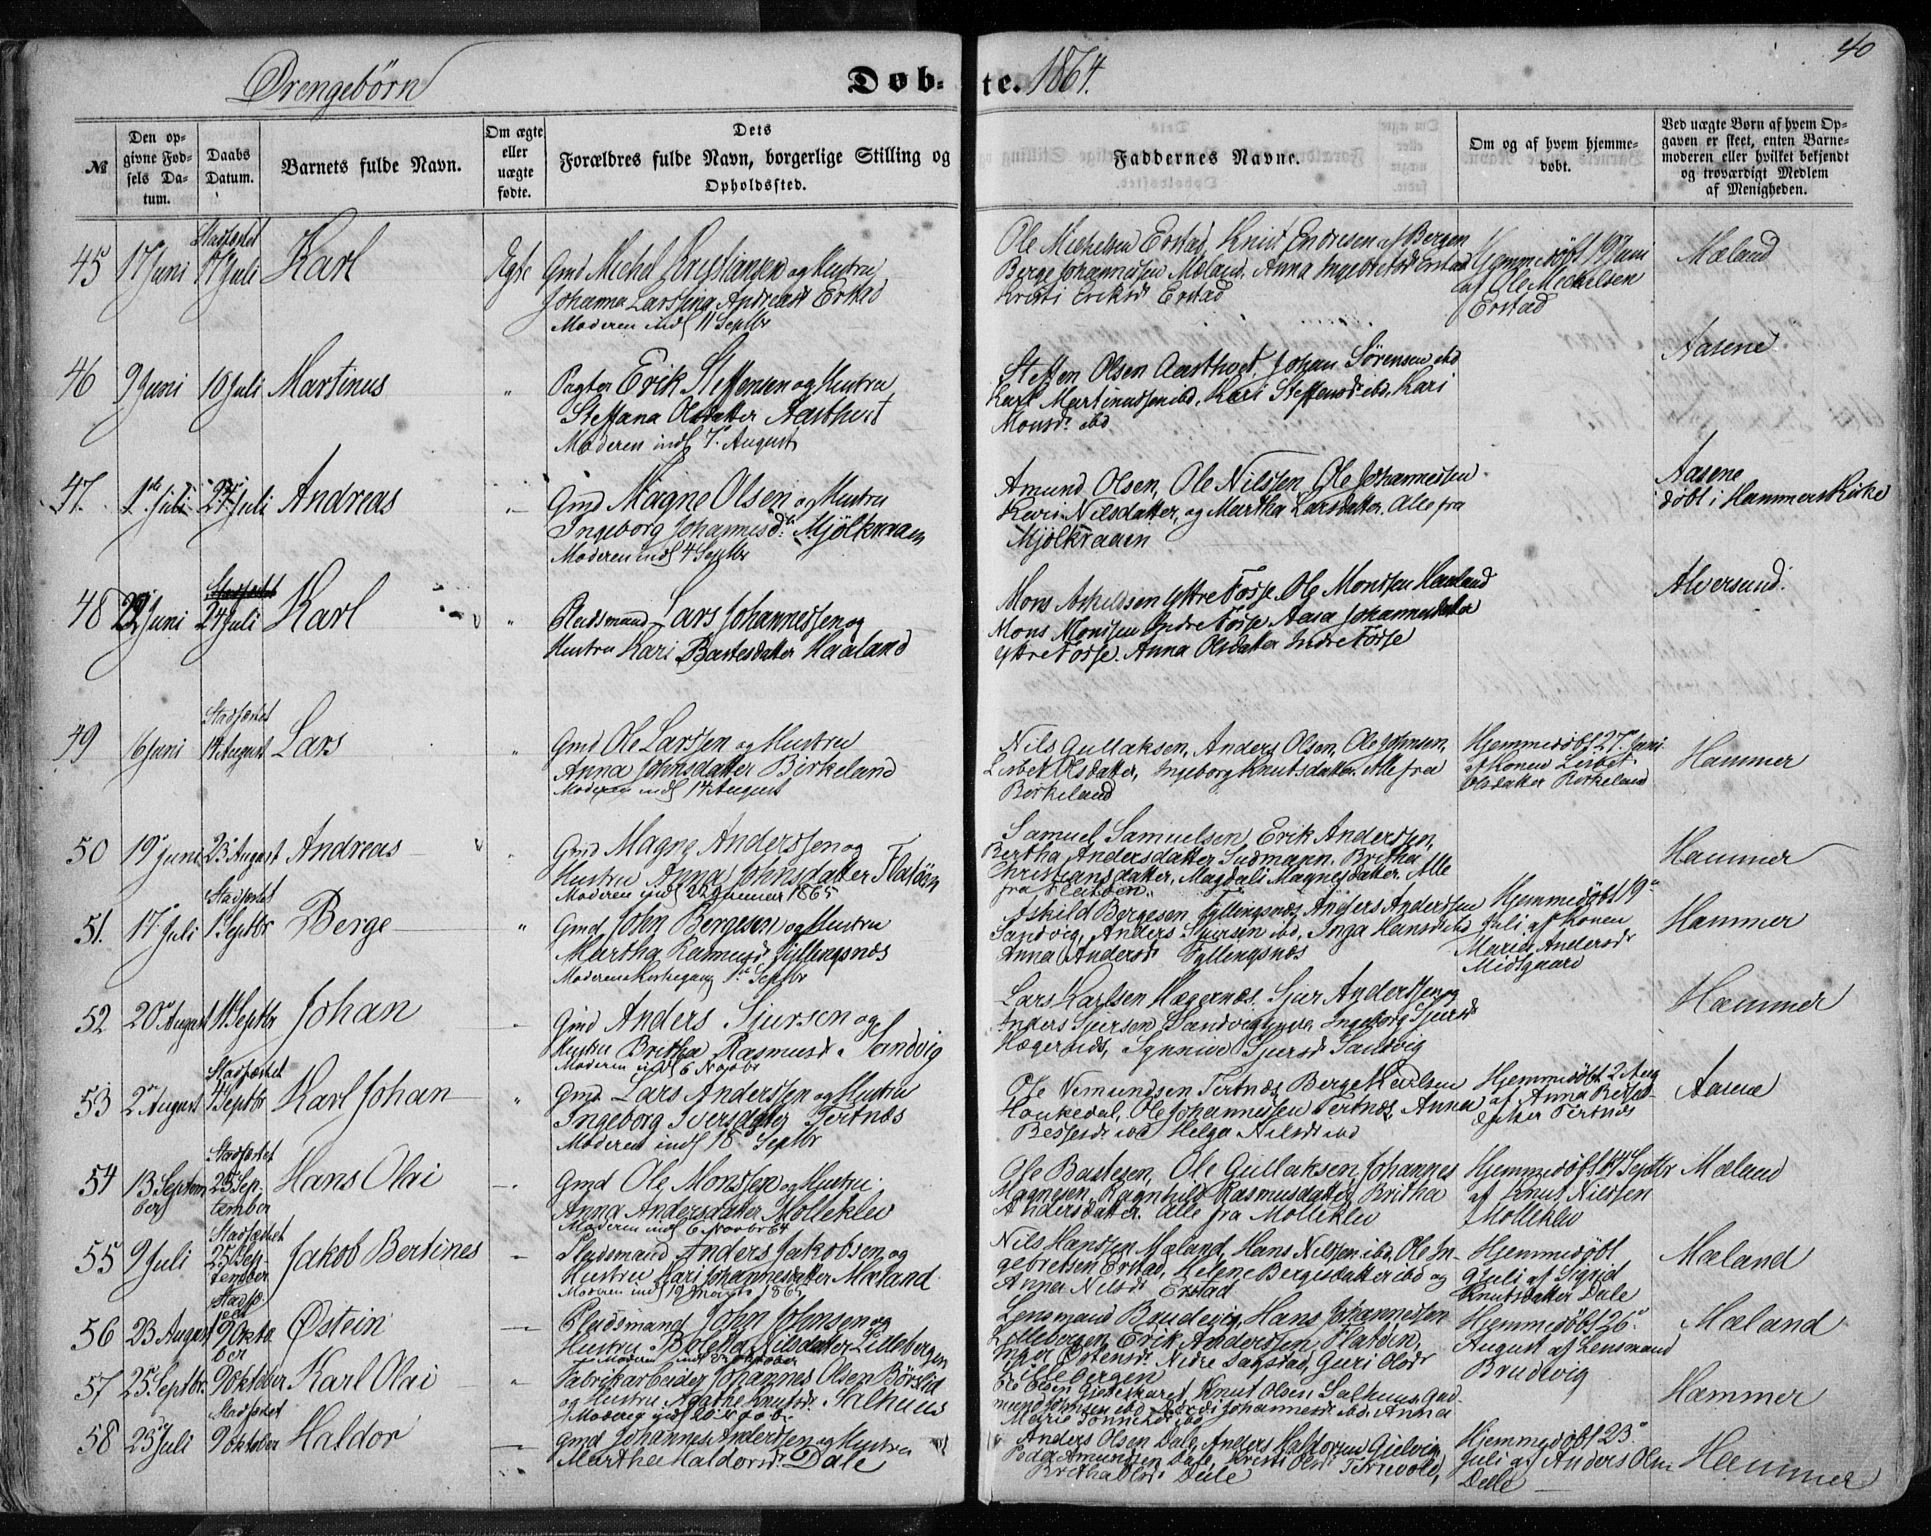 Drengebörn
Døb- te. 1864.
40
№
Den opgivne Fødsels Datum.
Daabs Datum.
Barnets fulde Navn.
Om ægte eller uægte fødte.
Dets Forældres fulde Navn, borgerlige Stilling og Opholdssted.
Faddernes Navne.
Om og af hvem hjemmedøbt.
Ved uægte Børn af hvem Opgaven er skeet, enten Barnemoderen eller hvilket bekjendt og troværdigt Medlem af Menigheden.
45 17 Juni Stadfæstet 17 Juli Karl Egte
Gmd Michel Kristiansen og Hustru
Johanna Larssine Andreasd Erstad
Moderen indl 11 Septbr
Ole Michelsen Erstad, Knut Endresen af Bergen
Berge Johannesen Mæland, Anna Ingebretsd Erstad
Kristi Eriksd Erstad
Hjemmedöbt 19 Juni
af Ole Michelsen
Erstad
Mæland
46 9 Juni 10 Juli Martinus "
Pagter Erik Steffensen og Hustru
Steffana Olsdatter Aasthvet
Moderen indl 7 August
Steffen Olsen Aasthvet, Johan Sörensen ibd
Karl Martinussen ibd, Kari Steffensd ibd, Kari
Monsd. ibd
Aasene
47. 1ste Juli 24 Juli Andreas
Gmd Magne Olsen og Hustru
Ingeborg Johannesd. Mjölkraaen
Moderen indl 4 Septbr
Amund Olsen, Ole Nilssen, Ole Johannessen
Kari Nilsdatter, og Martha Larsdatter. Alle fra
Mjölkraaen
Aasene
döbt i Hammers Kirke
48 Juni 24 Juli Karl "
Pladsmand Lars Johannessen og
Hustru Kari Bastesdatter Haaland
Mons Askildsen Ytre Fosse, Ole Monssen Haaland
Mons Monssen Indre Fosse Aasa Johannesdatter
Ytre Fosse. Anna Olsdatter Indre Fosse
Alversund.
49 16 Juni Stadfæstet 14 August Lars "
Gmd Ole Larssen og Hustru
Anna Johnsdatter Birkeland
Moderen indl 14 August
Nils Gullaksen, Anders Olsen, Ole Johnsen,
Lisbet Olsdatter, Ingeborg Knutsdatter. Alle fra
Birkeland
Hjemmedöbt 27 Juni
af Konen Lisbet
Olsdatter Birkeland
Hammer
50 19 Juni 23 August Andreas "
Gmd Magne Anderssen og
Hustru Anna Johnsdatter Flatöen
Moderen indl Januar 1865
Samuel Samuelsen, Erik Anderssen,
Bertha Andersdatter Sudmann, Britha
Christiansdatter, Magdali Magnesdatter. Alle
fra Flatöen.
Hammer
51. 17 Juli Stadfæstet 1 Septbr Berge "
Gmd John Bergesen og Hustru
Martha Rasmusd Fyllingsnæs
Moderens Kirkegang 1 Septbr
Askild Bergesen Fyllingsnæs, Anders Anderssen
Sandvig, Anders Sjursen ibd, Inga Hansd ibd
Anna Andersd. Fyllingsnæs
Hjemmedöbt 19
Juli af Konen
Marie Andersd
Midtgaard
Hammer
52 20 August 11 Septbr Johan
Gmd Anders Sjursen og
Hustru Britha Rasmusd. Sandvig
Moderen indl 6 Novbr
Lars Karlsen Hægernæs, Sjur Anderssen og
Anders Sjursen Sandvig, Ingeborg Sjursd
Hægernæs, Synnive Sjursd Sandvig
Hammer
53 2 August Stadfæstet 4 Septbr Karl Johan "
Gmd. Lars Anderssen og Hustru
Ingeborg Iversdatter Tertnæs
Moderen indl 18 Septbr
Ole Nemundsen Tertnæs Berge Karlsen
Haukedal, Ole Johannessen Tertnæs, Anna
ibd Helga Nilsd ibd
Hjemmedöbt 2 Aug
af Anna
datter Tertnæs
Aasene
54 13 September Stadfæstet 25 September Hans Olai
Gmd Ole Monssen og Hustru
Anna Andersdatter Mölleklev
Moderen indl 6 Novbr 64
Ole Bastesen, Ole Gullaksen, Johannes
Magnesen, Ragnhild Rasmusdatter, Britha
Andersdatter. Alle fra Mölleklev
Hjemmedöbt 14 Septbr
af Knut Nilssen
Mölleklev
Mæland
55 9 Juli Stadfæstet 25 September Jakob Bertines
Pladsmand Anders Jakobsen og
Hustru Kari Johannesdatter Mæland
Moderen indl 19 Marts 1865
Nils Hanssen Mæland, Hans Nilssen ibd, Ole Ingebretsen Erstad, Helene Bergesdatter ibd og
Anna Nilsd Erstad
Hjemmedöbt
Juli af Sigrid
Knutsdatter Dale
Mæland
56 23 August Stadfæstet 9 Oktober Østein
Pladsmand John Johnsen og
Hustru Boletta Nilsdatter Lillebergen
Moderen indl Oktober
Lensmand Brudevig, Hans Johannessen
Lillebergen Erik Anderssen Flatöen,
Inger Østensd. Nedre Dagstad, Guri Olsd
Lillebergen
Hjemmedöbt 26
August af Lensmand
Brudevig
Mæland
57 25 Septbr. 9 Oktober Karl Olai "
Fabrikarbeider Johannes Olsen Börslid
og Hustru Agathe Knutsd. Salhuus
Ole Olsen Knut Olsen Salhuus
Johannesd ibd. Anna
Hammer
58 23 Juli Stadfæstet 9 Oktober Haldor
Gmd Johannes Anderssen og Hustru
Martha Haldorsd. Dale
Anders Olsen Dale, Anders Haldorsen Gjelvig
Peder Amundsen Dale, Kristi Olsd.
Britha Olsd. Dale
Hjemmedöbt 23
Juli af Anders Olsen
Dale
Hammer